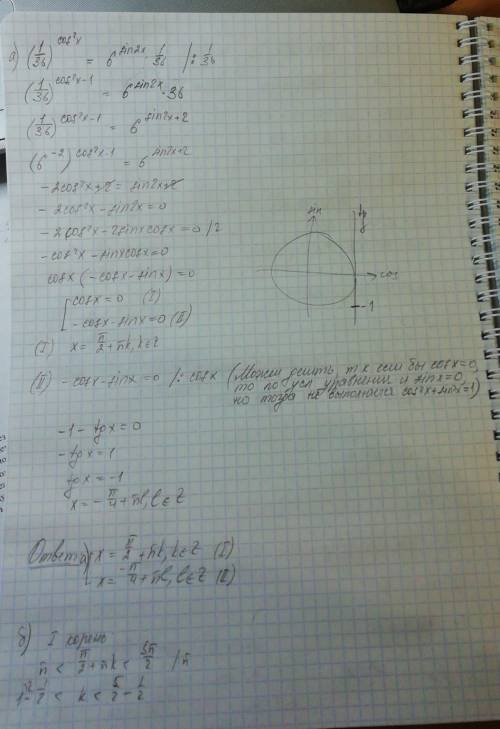 а) (1/36)^(cos²x) = 6^(sin2x) · 1/36 /: 1/36
(1/36)^(cos²x-1) = 6^(sin2x) · 36
(1/36)^(cos²x-1) = 6^(sin2x+2)
(6^(-2))^(cos²x-1) = 6^(sin2x+2)
-2cos²x+2 = sin2x+2
-2cos²x - sin2x = 0
-2cos²x - 2sinxcosx = 0 /2
-cos²x - sinxcosx = 0
cosx(-cosx-sinx) = 0
[ cosx = 0 (I)
-cosx-sinx = 0 (II)
(I) x = π/2 + πk, k∈Z
sin
tg
cos
-1
(II) -cosx-sinx = 0 /: cosx (Можем делить, т.к если бы cosx=0,
то по усл уравнения и sinx=0,
но тогда не выполняется cos²x+sin²x=1)
-1 - tgx = 0
-tgx = 1
tgx = -1
x = -π/4 + πl, l∈Z
Ответ: а) [ x = π/2 + πk, k∈Z (I)
x = -π/4 + πl, l∈Z (II)
б) I корень
π < π/2 + πk < 5π/2 /π
1-1/2 < k < 5/2 - 1/2